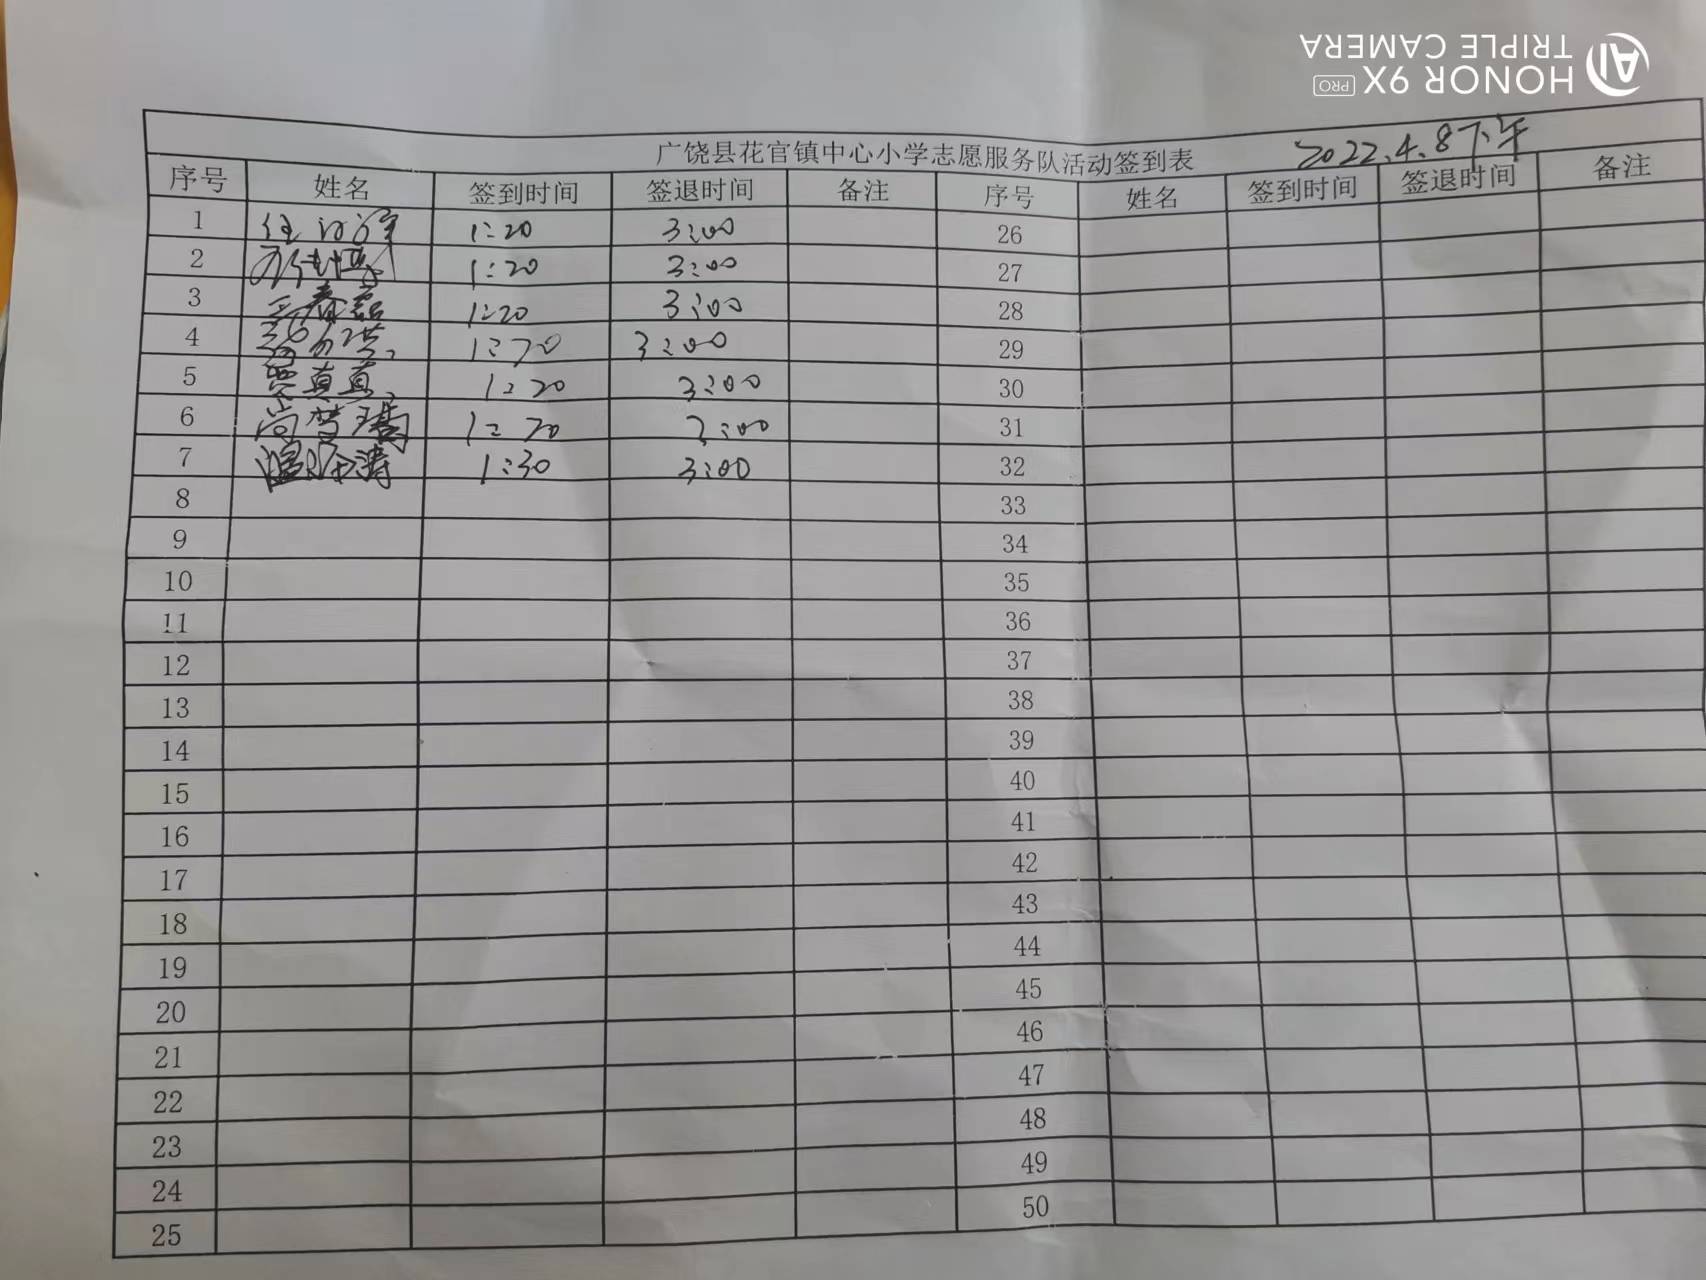 HONOR 9X PRO
TRIPLE CAMERA
广饶县花官镇中心小学志愿服务队活动签到表 2022.4.8下午
序号 姓名 签到时间 签退时间 备注 序号 姓名 签到时间 签退时间 备注
1 1:20 3:00 26
2 1:20 3:00 27
3 王春磊 1:20 3:00 28
4 1:20 3:00 29
5 贾真真 1:20 3:00 30
6 尚梦瑶 1:20 3:00 31
7 1:30 3:00 32
8 33
9 34
10 35
11 36
12 37
13 38
14 39
15 40
16 41
17 42
18 43
19 44
20 45
21 46
22 47
23 48
24 49
25 50